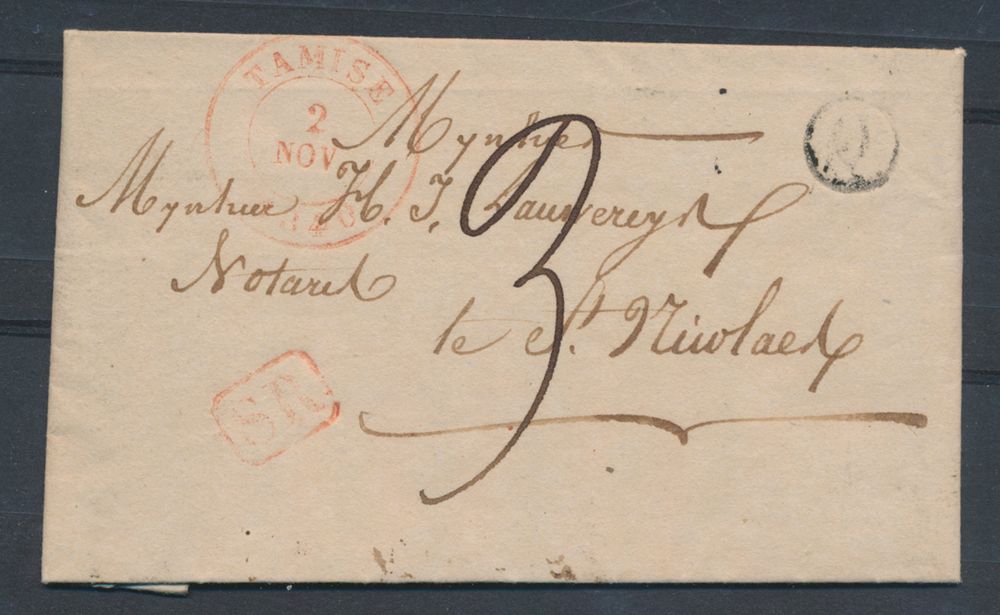 TAMISE
2
NOV
Mynheer
Mynheer H. J. Lauwereys
Notaris
te St. Nicolaes
3
SR